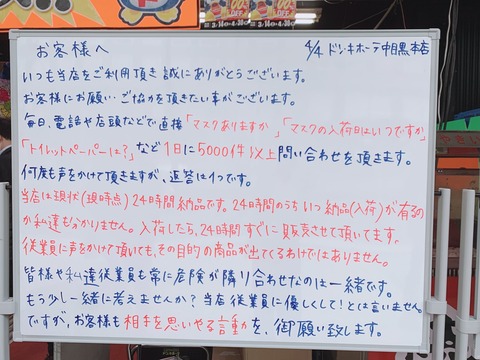 お客様へ
4/4 ドン・キホーテ中目黒本店
いつも当店をご利用頂き誠にありがとうございます。
お客様にお願い・ご協力を頂きたい事がございます。
毎日、電話や店頭などで直接「マスクありますか」「マスクの入荷日はいつですか」
「トイレットペーパーは?」など1日に5000件以上問い合わせを頂きます。
何度も声をかけて頂きますが、返答は1つです。
当店は現状(現時点)24時間納品です。24時間のうちいつ納品(入荷)が有るの
か私達も分かりません。入荷したら、24時間すぐに販売させて頂いてます。
従業員に声をかけて頂いても、その目的の商品が出てくるわけではありません。
皆様や私達従業員も常に危険が隣り合わせなのは一緒です。
もう少し一緒に考えませんか?当店従業員に優しくして!とは言いません。
ですが、お客様も相手を思いやる言動を、御願い致します。